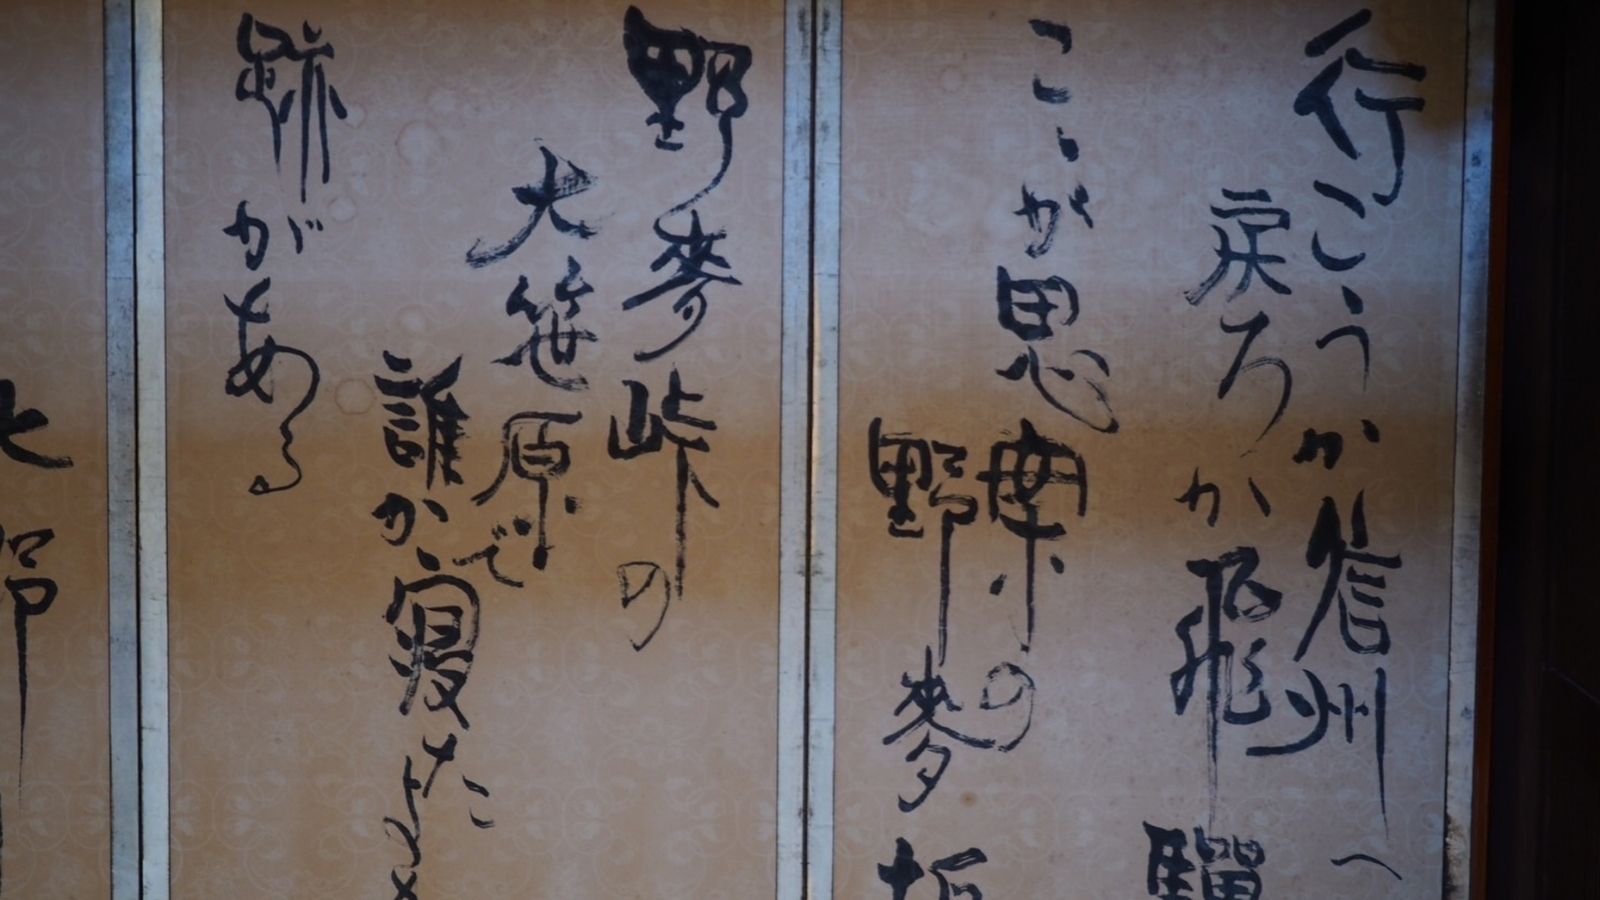 行こうか信州へ
戻ろか飛驒
こゝが思案の
野麥坂
野麥峠の
大笹原で
誰か寝たよな
跡がある